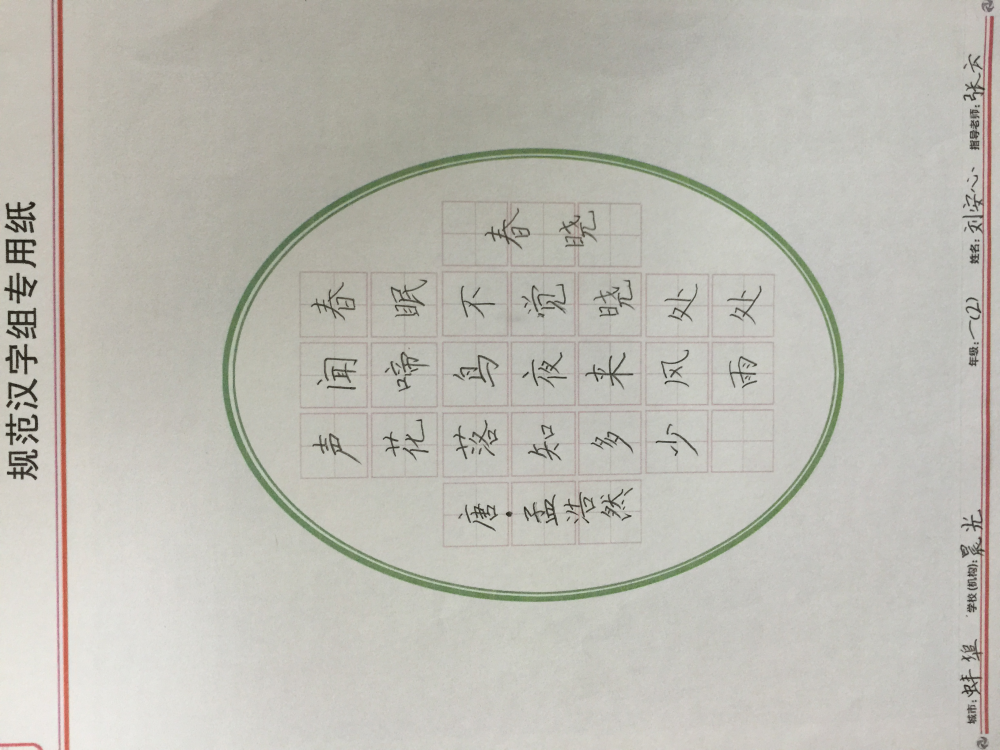 规范汉字组专用纸
春晓
春眠不觉晓处处
闻啼鸟夜来风雨
声花落知多少
唐·孟浩然
城市: 蚌埠 学校(机构): 晨光 年级: 一(2) 姓名: 刘安心 指导老师: 张六